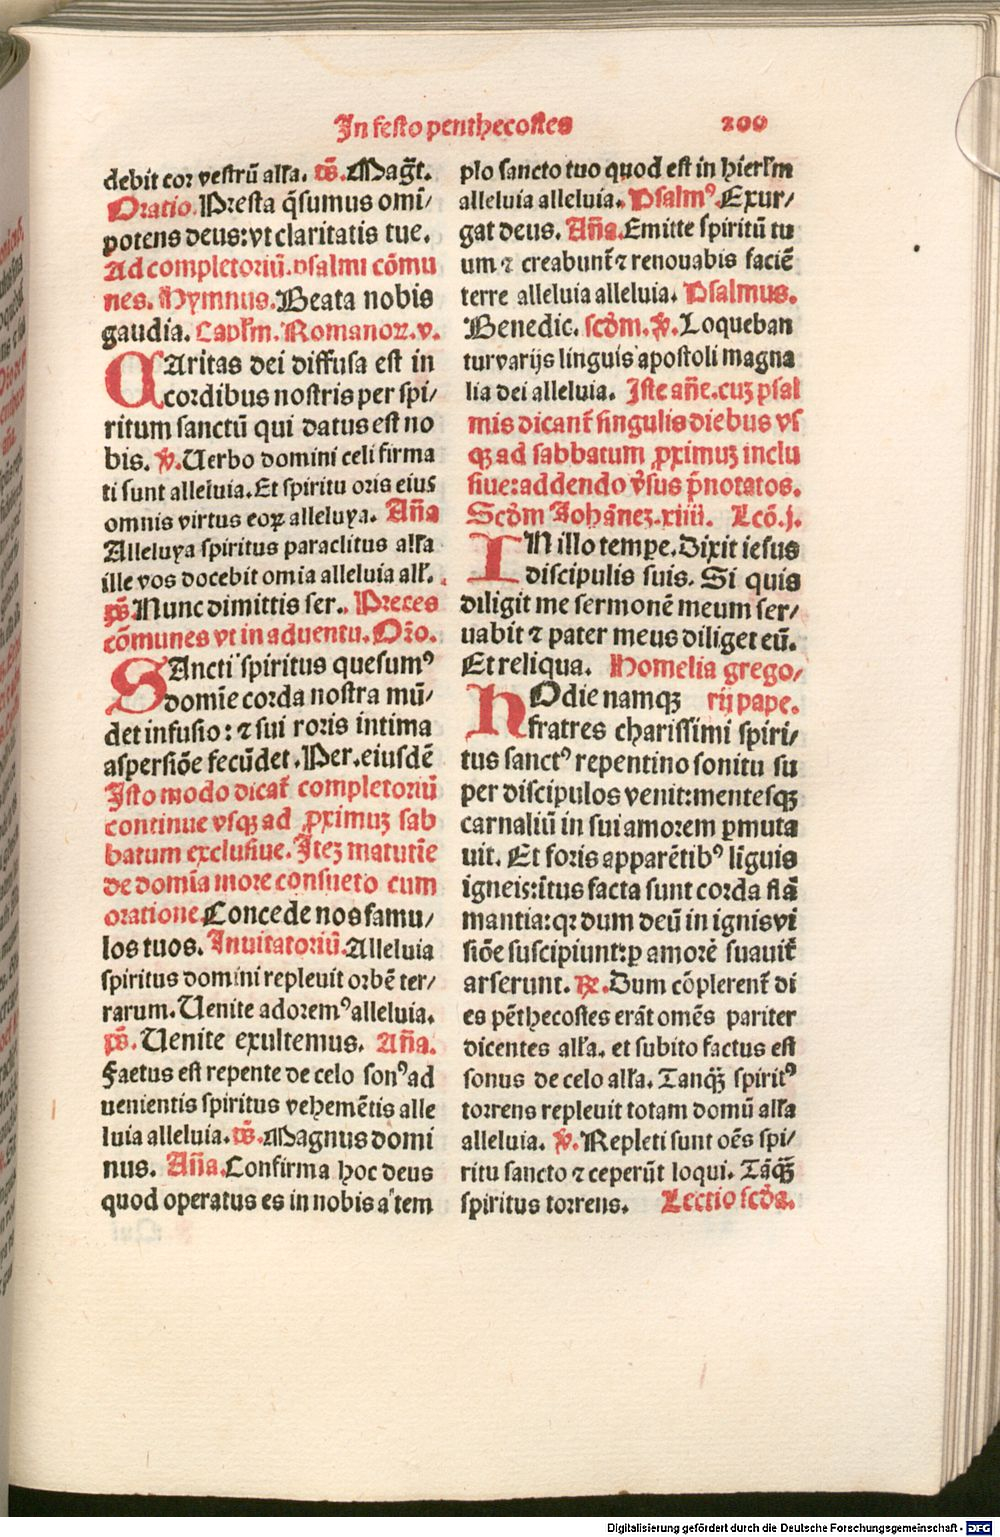 In festo penthecostes 200
debit cor vestrũ alľa. p̃s. Mag̃t.
Oratio. Presta q̃sumus omi/
potens deus: vt claritatis tue.
Ad completoriũ. psalmi cõmu
nes. Hymnus. Beata nobis
gaudia. Capľm. Romanoꝝ. v.
CAritas dei diffusa est in
cordibus nostris per spi/
ritum sanctũ qui datus est no
bis. ℣. Uerbo domini celi firma
ti sunt alleluia. Et spiritu oris eius
omnis virtus eoꝝ alleluya. Aña
Alleluya spiritus paraclitus alľa
ille vos docebit omia alleluia alľ.
p̃s. Nunc dimittis ser. Preces
cõmunes vt in aduentu. Or̃o.
SAncti spiritus quesumꝰ
domĩe corda nostra mũ/
det infusio: ⁊ sui roris intima
aspersiõe fecũdet. Per. eiusdẽ
Isto modo dicat̃ completoriũ
continue vsqꝫ ad ꝓximuꝫ sab
batum exclusiue. Iteꝫ matutĩe
de domĩa more consueto cum
oratione. Concede nos famu/
los tuos. Inuitatoriũ. Alleluia
spiritus domini repleuit orbẽ ter/
rarum. Uenite adoremꝰ alleluia.
p̃s. Uenite exultemus. Aña.
Faetus est repente de celo sonꝰ ad
uenientis spiritus vehemẽtis alle
luia alleluia. p̃s. Magnus domi
nus. Aña. Confirma hoc deus
quod operatus es in nobis a tem
plo sancto tuo quod est in hierľm
alleluia alleluia. Psalmꝰ. Exur/
gat deus. Aña. Emitte spiritũ tu
um ⁊ creabunt̃ ⁊ renouabis faciẽ
terre alleluia alleluia. Psalmus.
Benedic. scd̃m. ℣. Loqueban
tur varijs linguis apostoli magna
lia dei alleluia. Iste añe. cuꝫ psal
mis dicant̃ singulis diebus vs
qꝫ ad sabbatum ꝓximuꝫ inclu
siue: addendo v̓sus p̃notatos.
Scd̃m Johãneꝫ. xiiij. Lcõ. j.
IN illo tempe. Dixit iesus
discipulis suis. Si quis
diligit me sermonẽ meum ser/
uabit ⁊ pater meus diliget eũ.
Et reliqua. Homelia grego/
HOdie namqꝫ rij pape.
fratres charissimi spiri/
tus sanctꝰ repentino sonitu su
per discipulos venit: mentesqꝫ
carnaliũ in sui amorem ꝑmuta
uit. Et foris apparẽtibꝰ lĩguis
igneis: ĩtus facta sunt corda flã
mantia: qꝛ dum deũ in ignis vi
siõe suscipiunt: ꝑ amorẽ suauit̃
arserunt. ℞. Dum cõplerent̃ di
es pẽthecostes erãt omẽs pariter
dicentes alľa. et subito factus est
sonus de celo alľa. Tanqꝫ̃ spiritꝰ
torrens repleuit totam domũ alľa
alleluia. ℣. Repleti sunt oẽs spi/
ritu sancto ⁊ ceperũt loqui. Tãqꝫ̃
spiritus torrens. Lectio scd̃a.
Digitalisierung gefördert durch die Deutsche Forschungsgemeinschaft - DFG